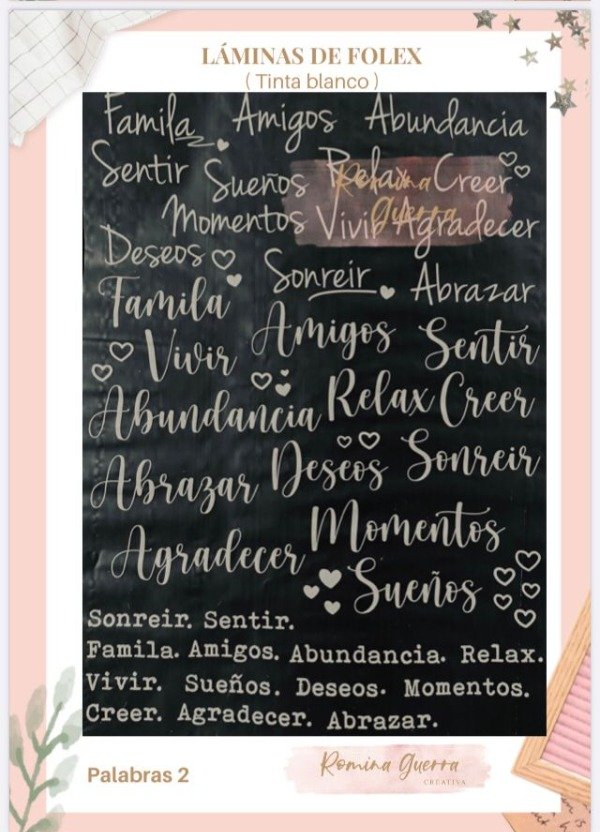 LÁMINAS DE FOLEX
( Tinta blanco )
Famila Amigos Abundancia
Sentir Sueños Relax Creer
Romina
Guerra
Momentos Vivir Agradecer
Deseos Sonreir Abrazar
Famila Amigos Sentir
Vivir
Abundancia Relax Creer
Abrazar Deseos Sonreir
Agradecer Momentos
Sueños
Sonreir. Sentir.
Famila. Amigos. Abundancia. Relax.
Vivir. Sueños. Deseos. Momentos.
Creer. Agradecer. Abrazar.
Palabras 2
Romina Guerra
CREATIVA